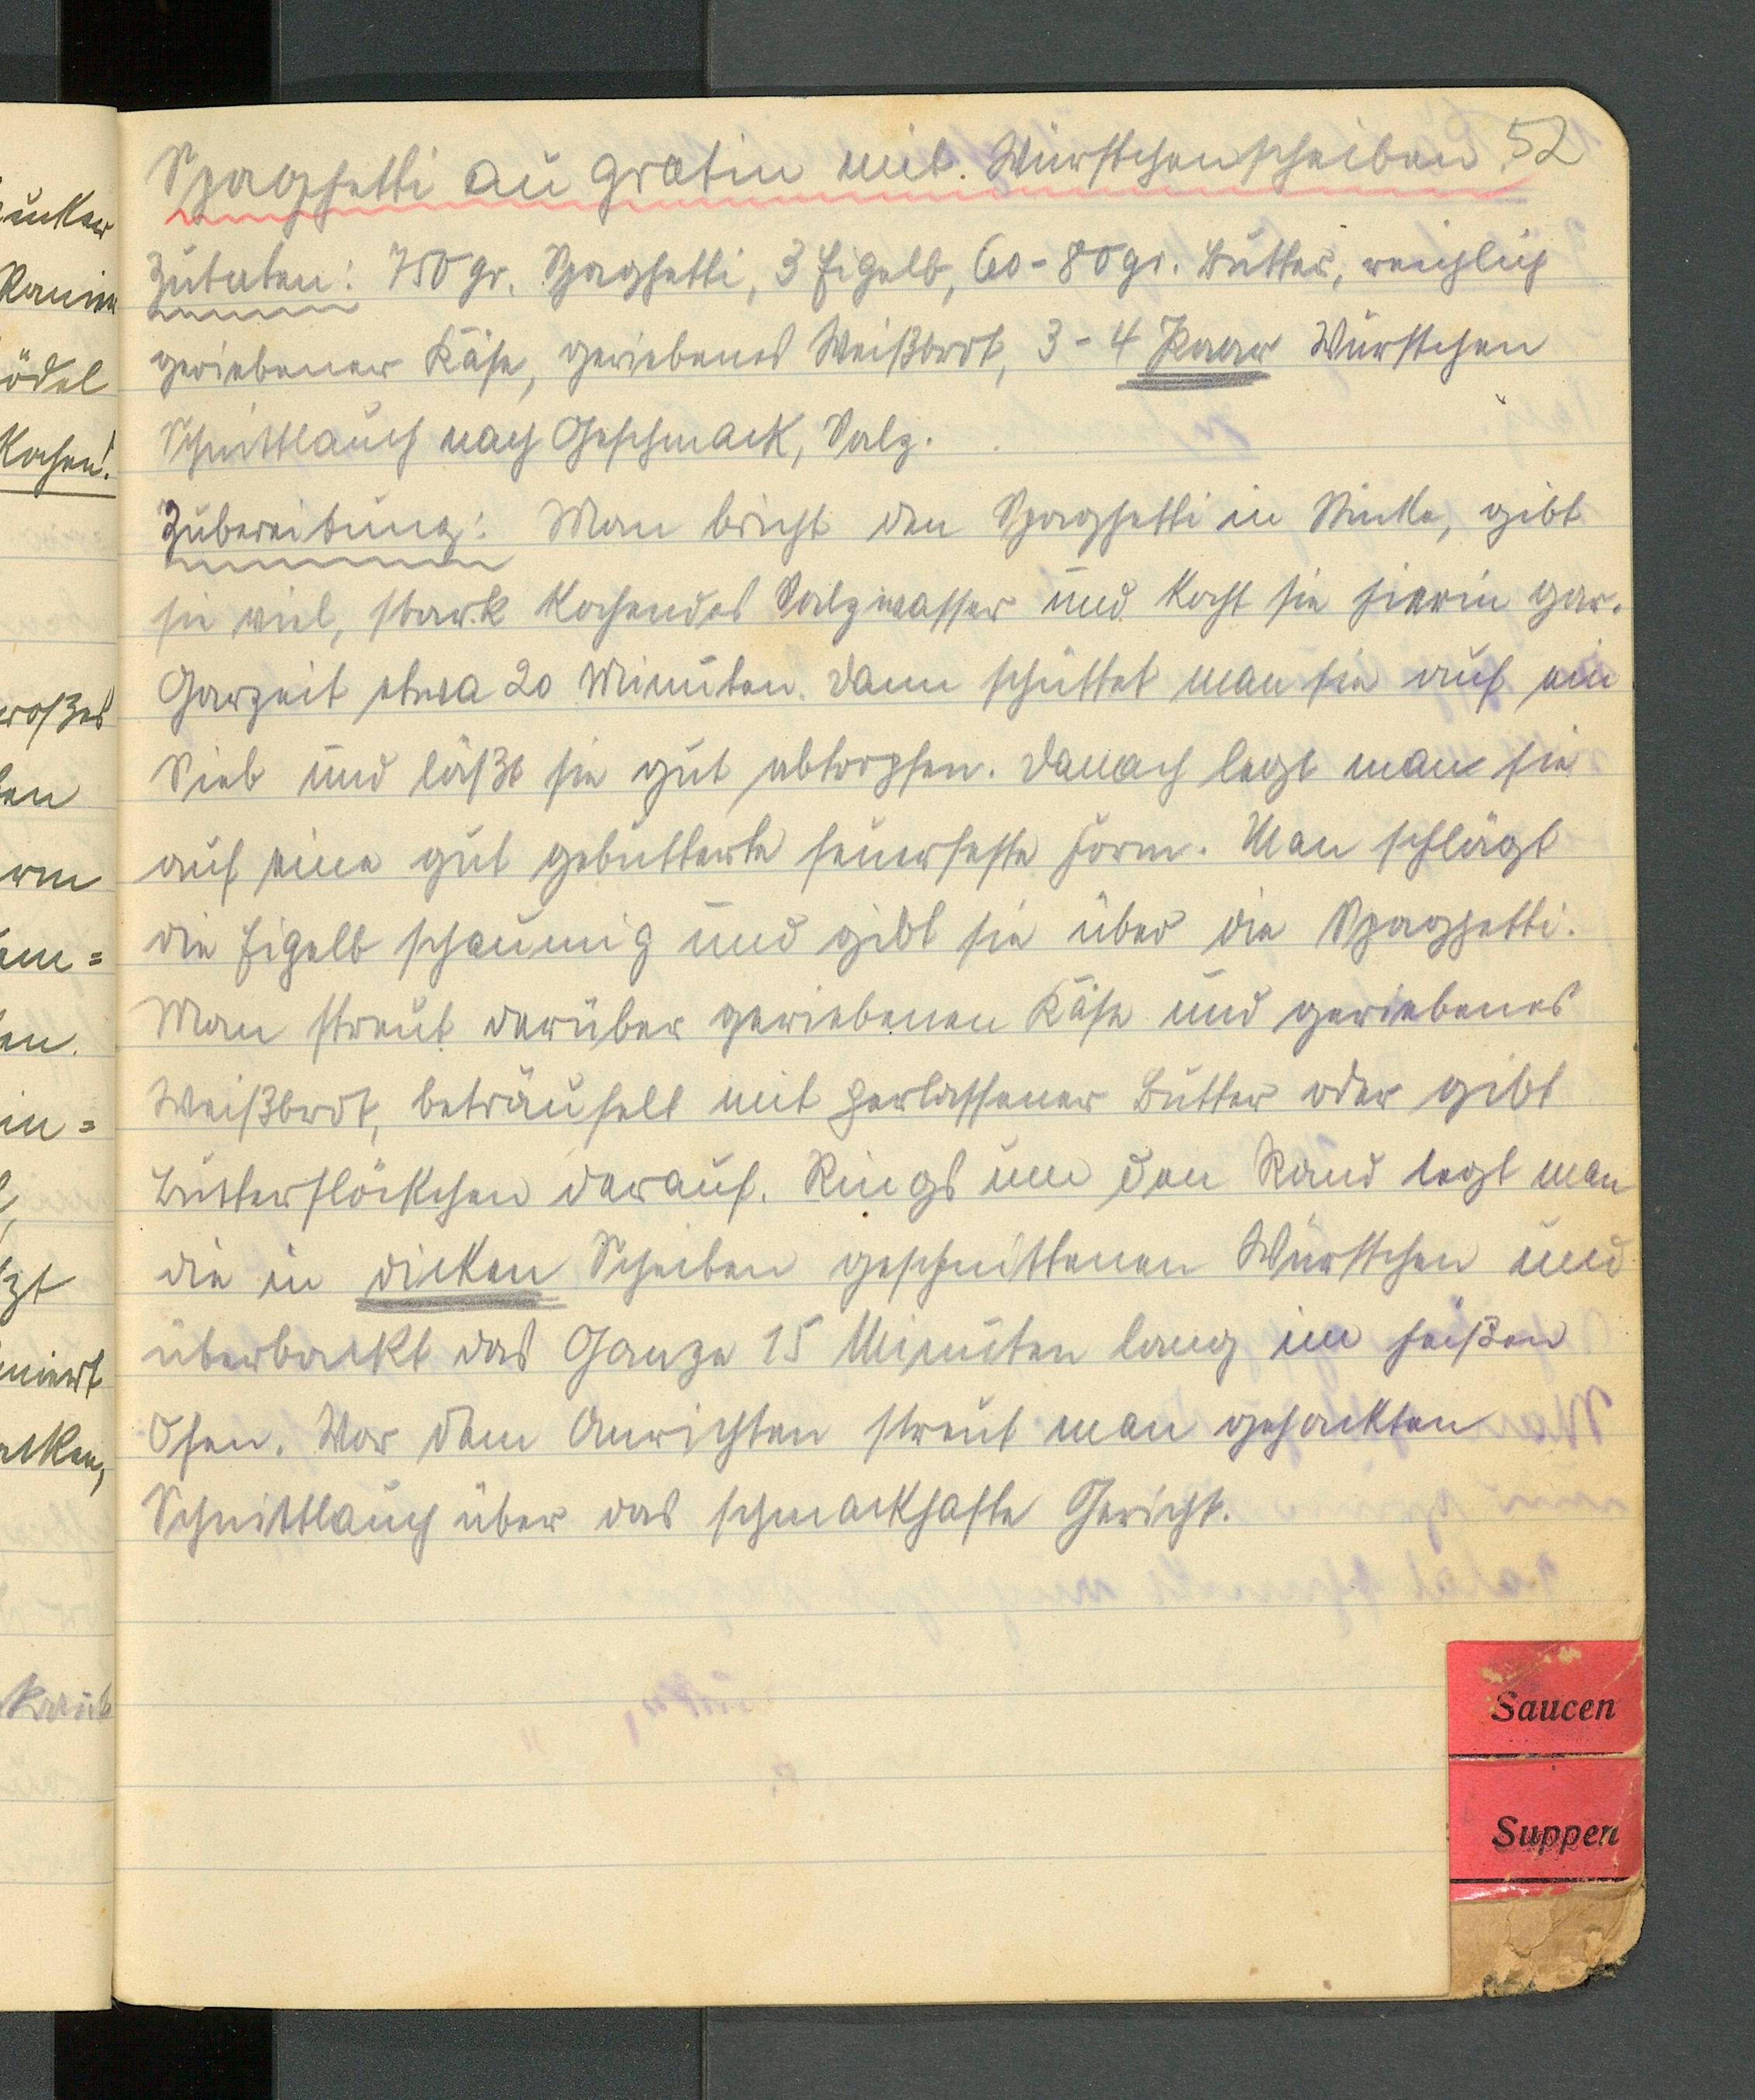 Spaghetti au gratin mit Würstchenscheiben. 52
Zutaten: 750 gr. Spaghetti, 3 Eigelb, 60-80 gr. Butter, reichlich
geriebener Käse, geriebenes Weißbrot, 3-4 Paar Würstchen
Schnittlauch nach Geschmack, Salz.
Zubereitung: Man bricht den Spaghetti in Stücke, gibt
sie viel, stark kochendes Salzwasser und kocht sie hierin gar.
Garzeit etwa 20 Minuten. Dann schüttet man sie auf ein
Sieb und läßt sie gut abtropfen. Danach legt man sie
auf eine gut gebutterte feuerfeste Form. Man schlägt
die Eigelb schaumig und gibt sie über die Spaghetti.
Man streut darüber geriebenen Käse und geriebenes
Weißbrot, beträufelt mit zerlassener Butter oder gibt
Butterflöckchen darauf. Rings um den Rand legt man
die in dicken Scheiben geschnittenen Würstchen und
überbackt das Ganze 15 Minuten lang im heißen
Ofen. Vor dem Anrichten streut man gehackten
Schnittlauch über das schmackhafte Gericht.
Saucen
Suppen